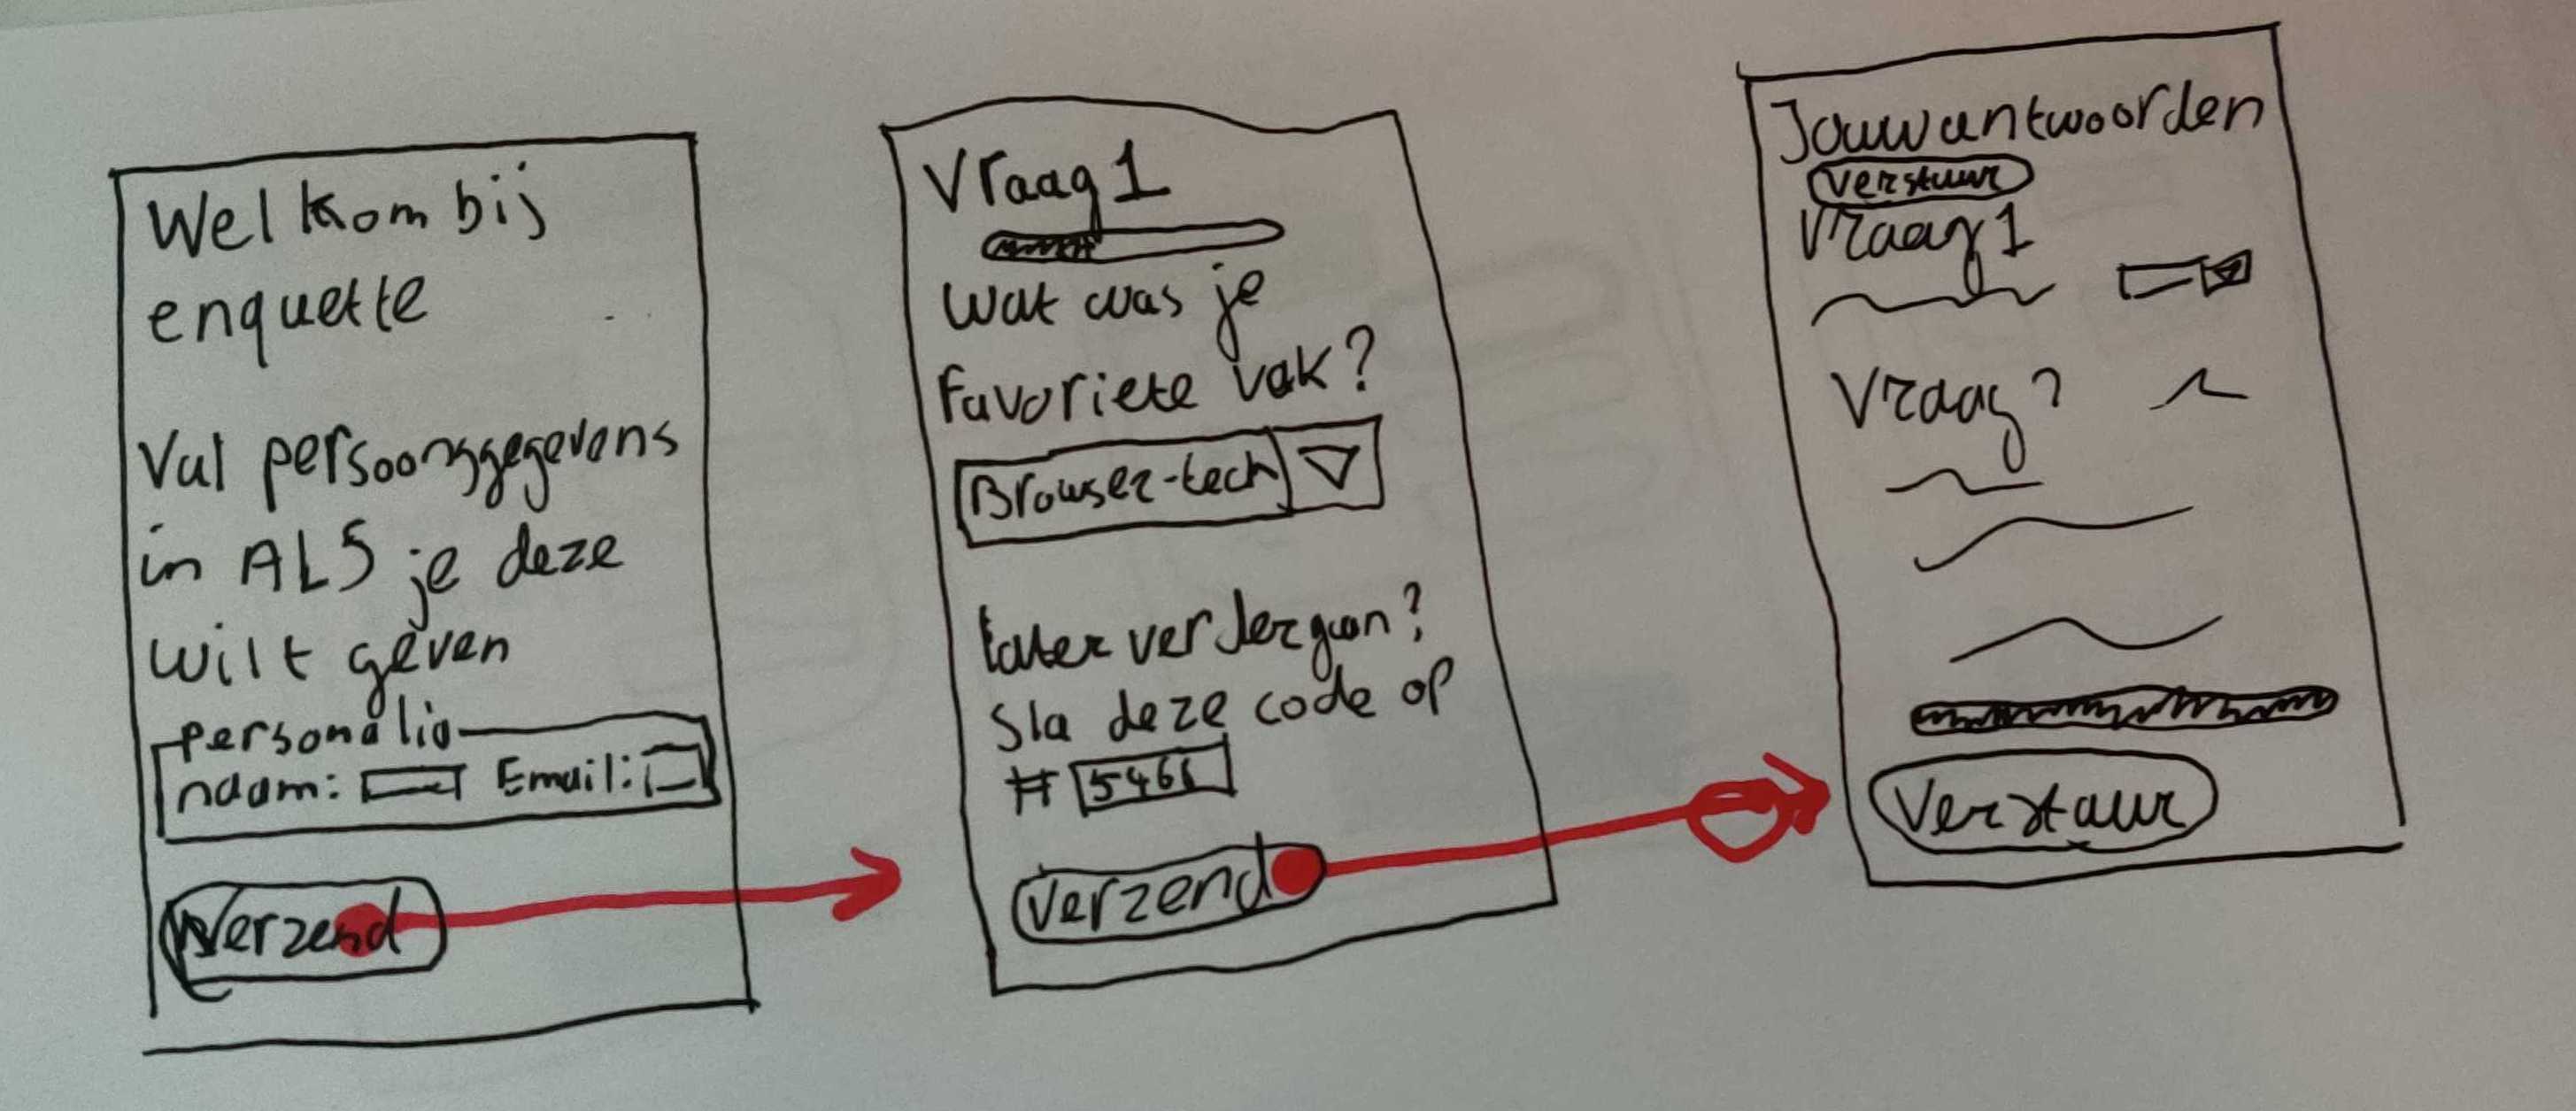 Welkom bij
enquette
Vul persoonsgegevens
in ALS je deze
wilt geven
personalia
naam: Email:
Verzend
Vraag 1
Wat was je
Favoriete vak?
Browser-tech
later verder gaan?
Sla deze code op
# 5466
Verzend
Jouw antwoorden
Verstuur
Vraag 1
Vraag ?
Verstuur